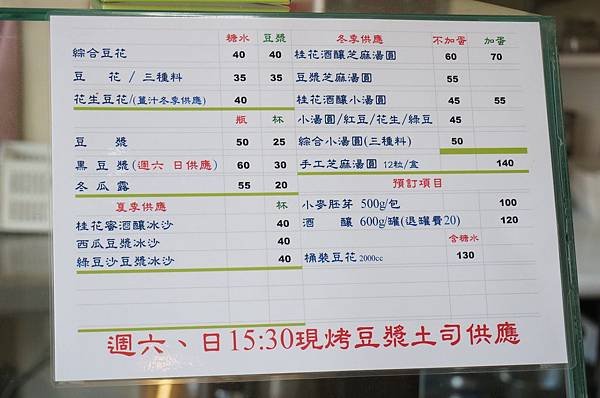 糖水 豆漿
綜合豆花 40 40
豆 花 / 三種料 35 35
花生豆花/(薑汁冬季供應) 40
瓶 杯
豆 漿 50 25
黑 豆 漿 (週六 日供應) 60 30
冬 瓜 露 55 20
夏季供應 杯
桂花蜜酒釀冰沙 40
西瓜豆漿冰沙 40
綠豆沙豆漿冰沙 40
冬季供應 不加蛋 加蛋
桂花酒釀芝麻湯圓 60 70
豆漿芝麻湯圓 55
桂花酒釀小湯圓 45 55
小湯圓/紅豆/花生/綠豆 45
綜合小湯圓(三種料) 50
手工芝麻湯圓 12粒/盒 140
預訂項目
小麥胚芽 500g/包 100
酒 釀 600g/罐(退罐費20) 120
含糖水
桶裝豆花 2000cc 130
週六、日15:30現烤豆漿土司供應